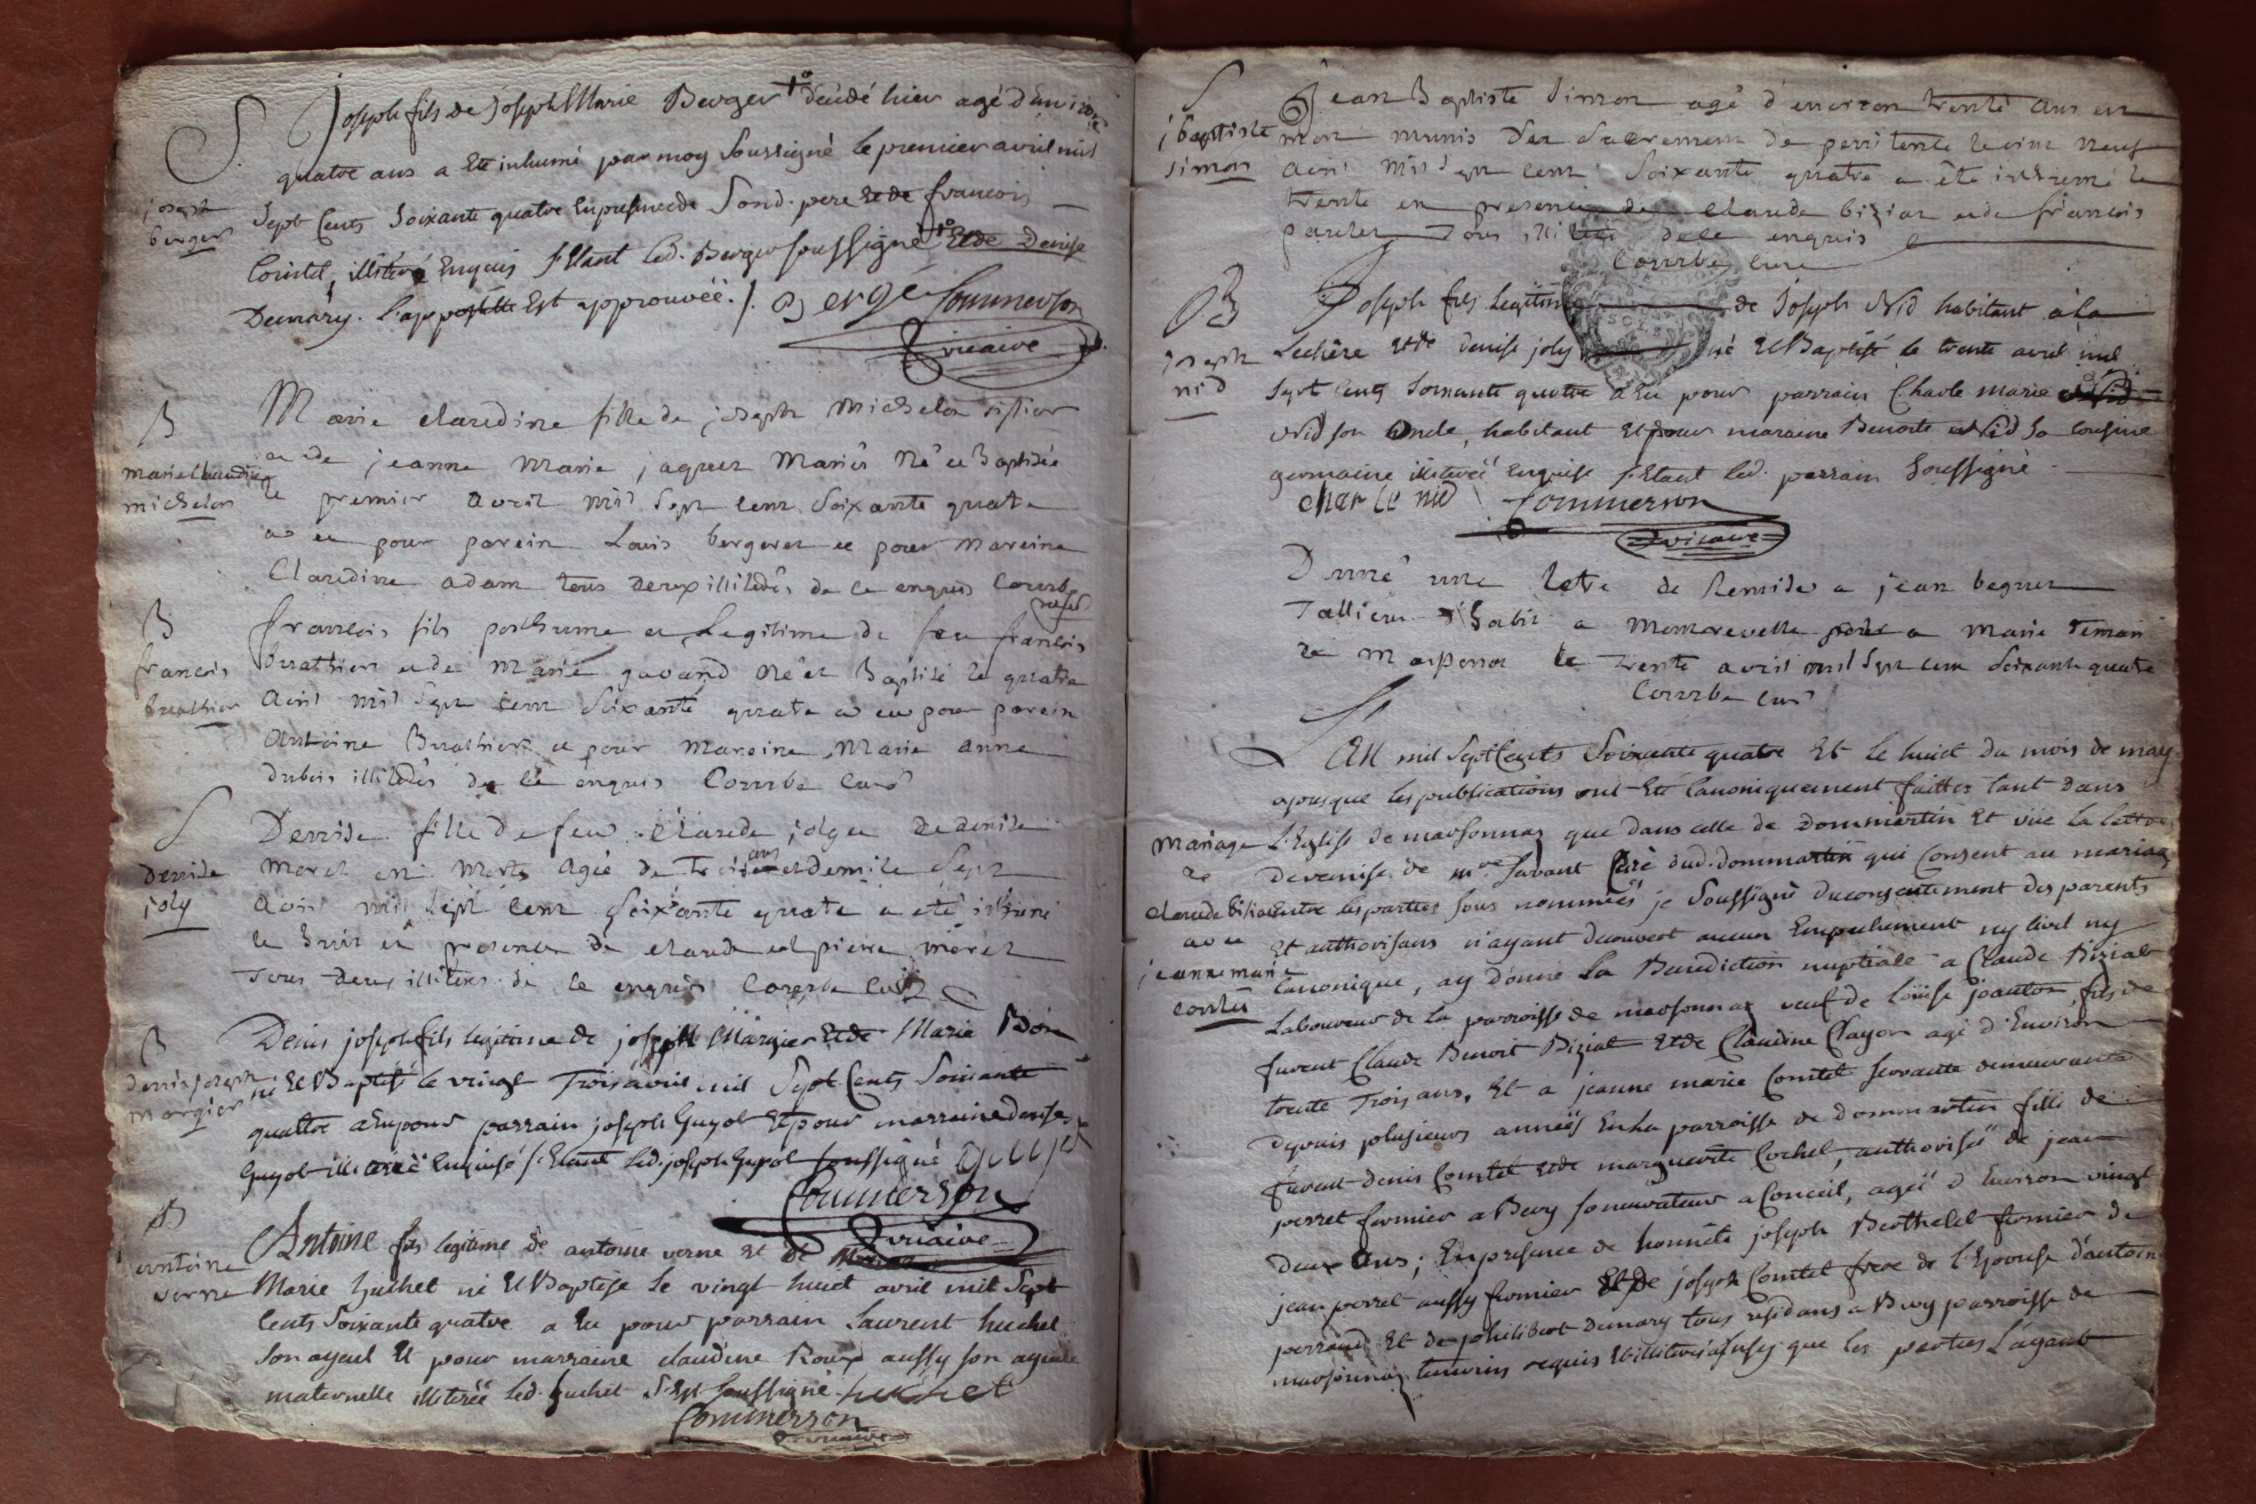 S.
joseph
berger
Joseph fils de Joseph Marie Berger décédé hier agé d'environ
quatre ans a Eté inhumé par moy Soussigné le premier avril mil
Sept Cents Soixante quatre En presence de Sond. pere Et de francois
Comtet, illiteré Enquis led. Berger soussigné Et de Denise
Demary. L'appostille Est approuvée. Bergé Commerson
vicaire
B
marie claudine
michelon
Marie claudine fille de joseph michelon
et de jeanne marie jaquet Mariés Né et Baptisée
le premier avril mil Sept cent Soixante quatre
a eu pour parein Louis bergeret et pour mareine
Claudine adam tous deux illiterés de ce enquis Courbe
curé
B
francois
buathier
francois fils posthume et Legitime de feu francois
buathier et de Marie gavand Né et Baptisé le quatre
avril mil Sept cent Soixante quatre a eu pour parein
Antoine Buathier et pour mareine Marie anne
dubois illiterés de ce enquis Courbe curé
S
denise
joly
Denise fille de feu claude joly et de denise
morel est morte agée de trois ans et demi le Sept
avril mil sept cent soixante quatre a été inhumé
le huit en presence de claude et pierre morel
tous deux illiteres de ce enquis Courbe curé
B
denis joseph
margier
Denis joseph fils legitime de joseph Margier Et de Marie Bon
né Et Baptisé le vingt Trois avril mil Sept Cents Soixante
quattre a Eu pour parrain joseph Guyot Et pour marraine denise
Guyot illiterée Enquise Etant led. joseph Guyot soussigné
Commerson
vicaire
B
antoine
verne
Antoine fils legitime de antoine verne et de
Marie huchet né Et Baptise le vingt huict avril mil Sept
Cents Soixante quatre a Eu pour parrain Laurent huchet
Son ayeul Et pour marraine claudine Roux aussy son ayeule
maternelle illiterée led. huchet s'Est soussigné huchet
Commerson
vicaire
S
jbaptiste
simon
Jean Baptiste Simon agé d'environ trente ans est
mort munis des Sacrement de penitence le vint neuf
avril mil Sept cent Soixante quatre a été inhumé le
trente en presence de claude biziat et de francois
tous de ce enquis
Courbe curé
B
joseph
nid
Joseph fils Legitime de Joseph Nid habitant à la
Lechère Et de denise joly né Et Baptisé le trente avril mil
Sept Cents Soixante quatre a Eu pour parrain Charle marie
Nid son Oncle, habitant Et pour maraine Benoite Nid Sa Cousine
germaine illiterée Enquise Etant led. parrain Soussigné
charle nid Commerson
vicaire
Donné une Letre de Remise a jean
a a Marie
le trente avril mil Sept cent Soixante quatre
Courbe curé
mariage
de
claude biziat
avec
jeanne marie
comtet
L'An mil Sept Cents Soixante quatre Et le huict du mois de may
apresque les publications ont Eté Canoniquement faittes tant dans
L'Eglise de marsonnaz que dans celle de Dommartin Et vüe la lettre
de remise de mre. Savant Curé dud. dommartin qui Consent au mariage
Entre les parties sous nommées je Soussigné du consentement des parents
Et authorisans n'ayant decouvert aucun Empechement ny Civil ny
Canonique, ay donné La Benediction nuptiale a Claude Biziat
Laboureur de la parroisse de marsonnaz veuf de Loüise joanton, fils de
furent Claude Benoit Biziat Et de Claudine Clayon agé d'Environ
trente Trois ans, Et a jeanne marie Comtet servante demeurante
depuis plusieurs années En La parroisse de dommartin fille de
furent denis Comtet Et de marguerite Cochet, authorisée de jean
perret fermier a Bevy son curateur a Conceil, agée d'Environ vingt
Deux Ans; En presence de honnête joseph Berthelet fermier de
jean perret aussy fermier Et de joseph Comtet frere de l'Epouse d'antoine
perraud Et de philibert Demary tous residans a Bevy parroisse de
marsonnaz temoins requis illiterés ainsy que les parties L'ayant